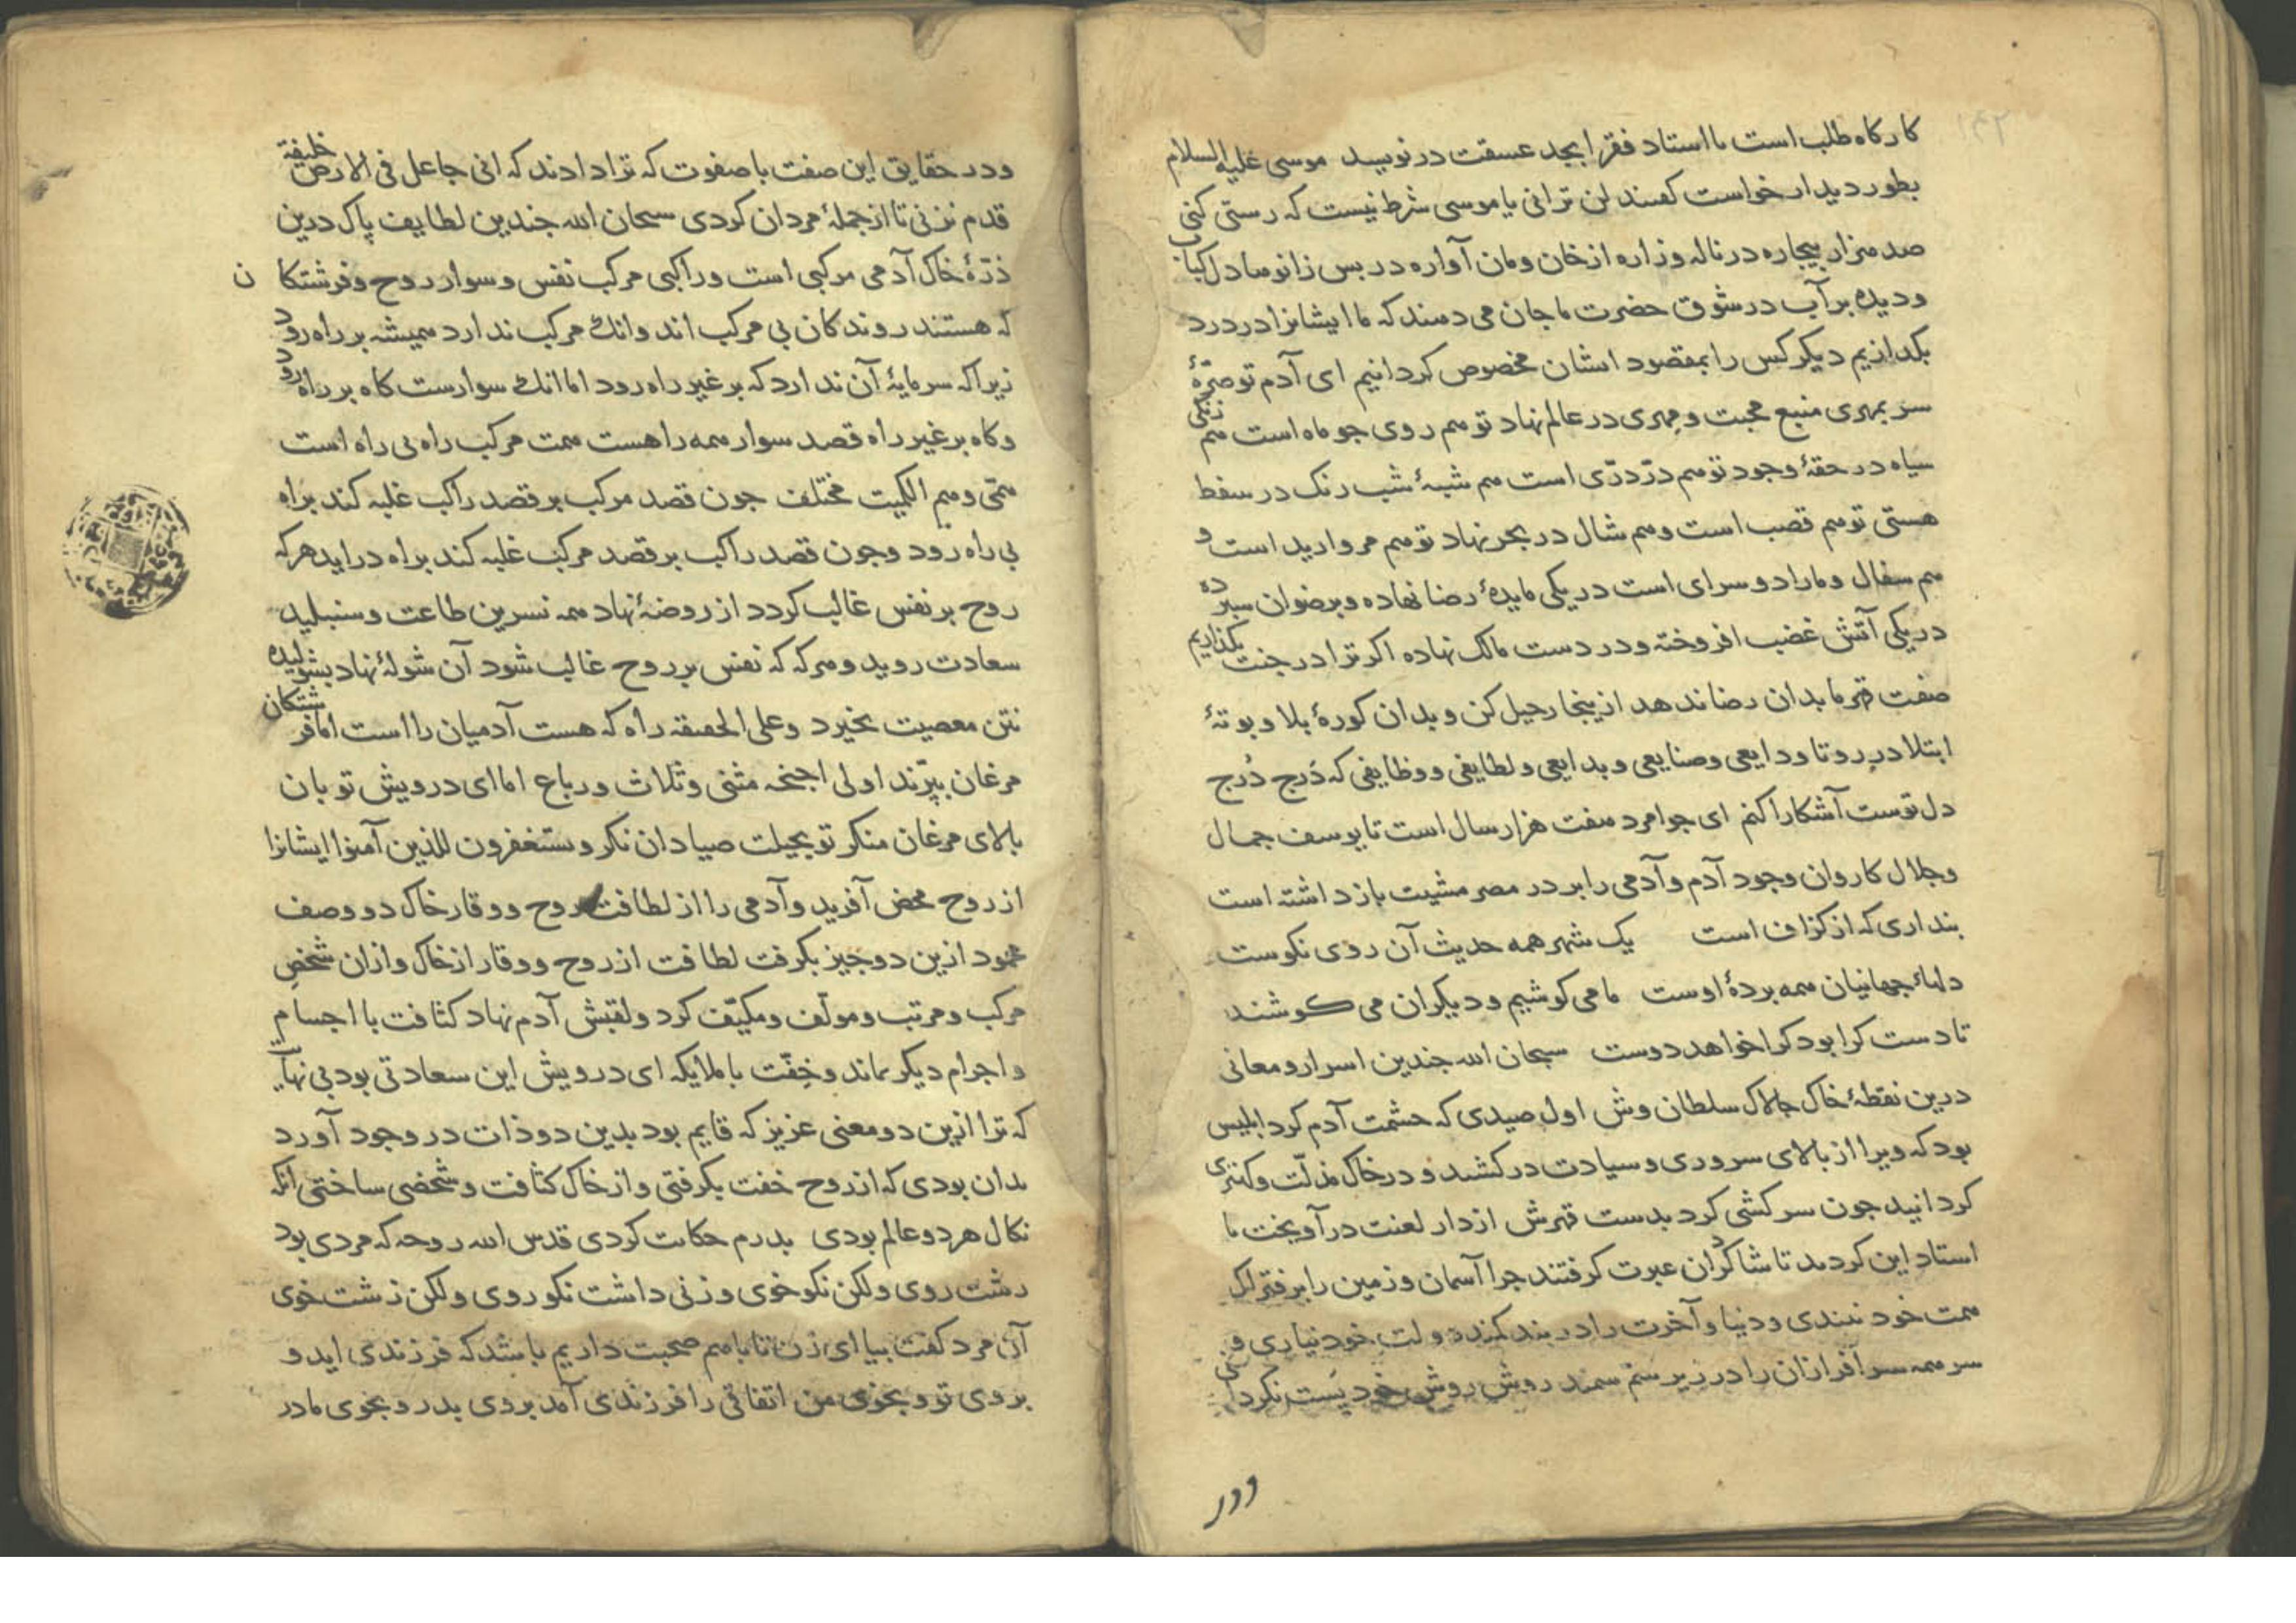 کارکاه طلب است با استاد فقر ابجد عسقت درنویسد موسی علیه السلام
بطور دیدار خواست کفتند لن ترانی یا موسی شرط نیست که رستی کنی
صد هزار بیجاره در ناله وزاره از خان ومان آواره در بس زانوها دل کباب
ودیده برآب در شوق حضرت ما جان می دهند که ما ایشانرا در درد
بکدازیم دیکر کس را بمقصود ایشان مخصوص کردانیم ای آدم تو صرّهٔ
سر بمهری منبع محبت و مهری در عالم نهاد تو هم روی جو ماه است هم زنکی
سیاه در حقهٔ وجود تو هم درّ درّی است هم شبهٔ شب رنک در سفط
هستی تو هم قصب است و هم شال در بحر نهاد تو هم مروارید است و
هم سفال و مارا دو سرای است در یکی مایدهٔ رضا نهاده و برضوان سبرده
در یکی آتش غضب افروخته و در دست مالک نهاده اکر ترا در جنت بکذاریم
صفت قهر ما بدان رضا ندهد از ینجا رحیل کن و بدان کورهٔ بلا و بوتهٔ
ابتلا در رو تا ودایعی وصنایعی و بدایعی و لطایفی و وظایفی که دَرج دُرج
دل توست آشکارا کنم ای جوامرد هفت هزار سال است تا یوسف جمال
وجلال کاروان وجود آدم و آدمی را بر در مصر مشیت بازداشته است
بنداری که از کزاف است یک شهر همه حدیث آن روی نکوست
دلهاء جهانیان همه بردهٔ اوست ما می کوشیم و دیکران می کوشند
تا دست کرا بود کرا خواهد دوست سبحان الله جندین اسرار و معانی
درین نقطهٔ خاک جالاک سلطان وش اول صیدی که حشمت آدم کرد ابلیس
بود که ویرا از بالای سروری و سیادت درکشید و در خاک مذلّت و کهتری
کردانید جون سرکشی کرد بدست قهرش از دار لعنت درآویخت با
استاد این کردند تا شاکردان عبرت کرفتند جرا آسمان و زمین را بر فتراک
همت خود نبندی و دنیا و آخرت را در بند کمند دولت خود نیاری و
سر همه سرافرازان را در زیر سم سمند روش خود پَست نکردانی
ودر
ودر حقایق این صفت با صفوت که ترا دادند که انی جاعل فی الارض خلیفة
قدم نزنی تا از جملهٔ مردان کردی سبحان الله جندین لطایف پاک درین
ذرّهٔ خاک آدمی مرکبی است و راکبی مرکب نفس و سوار روح و فرشتکان
که هستند روندکان بی مرکب اند و انک مرکب ندارد همیشه بر راه رود
زیرا که سرمایهٔ آن ندارد که بر غیر راه رود اما انک سوارست کاه بر راه رود
و کاه بر غیر راه قصد سوار همه راهست همت مرکب راه بی راه است
همّی و هم الکمیت مختلف جون قصد مرکب بر قصد راکب غلبه کند براه
بی راه رود و جون قصد راکب بر قصد مرکب غلبه کند براه دراید هر که
روح بر نفس غالب کردد از روضهٔ نهاد همه نسرین طاعت و سنبلید
سعادت روید و هر که که نفس بر روح غالب شود آن شولهٔ نهاد بشولیده
نتن معصیت بخیزد و علی الحقیقه راه که هست آدمیان را است اما فرشتکان
مرغان بپرّند اولی اجنحه مثنی وثلاث ورباع اما ای درویش تو بان
بالای مرغان منکر تو بحیلت صیادان نکر و یستغفرون للذین آمنوا ایشانرا
از روح محض آفرید و آدمی را از لطافت روح و وقار خاک دو وصف
محمود ازین دو جیز بکرفت لطافت از روح و وقار از خاک و ازان شخصِ
مرکب و مرتب و مولّف و مکیّف کرد و لقبش آدم نهاد کثافت با اجسام
و اجرام دیکر بماند و خِفّت با ملایکه ای درویش این سعادتی بود بی نهایت
که ترا ازین دو معنی عزیز که قایم بود بدین دو ذات در وجود آورد
بدان بودی که از روح خفت بکرفتی و از خاک کثافت و شخصی ساختی انکه
نکال هر دو عالم بودی بدرم حکایت کردی قدس الله روحه که مردی بود
زشت روی ولکن نکو خوی و زنی داشت نکو روی ولکن زشت خوی
آن مرد کفت بیا ای زن تا با هم صحبت داریم باشد که فرزندی اید و
بروی تو و بخوی من اتفاقی را فرزندی آمد بروی بدر و بخوی مادر